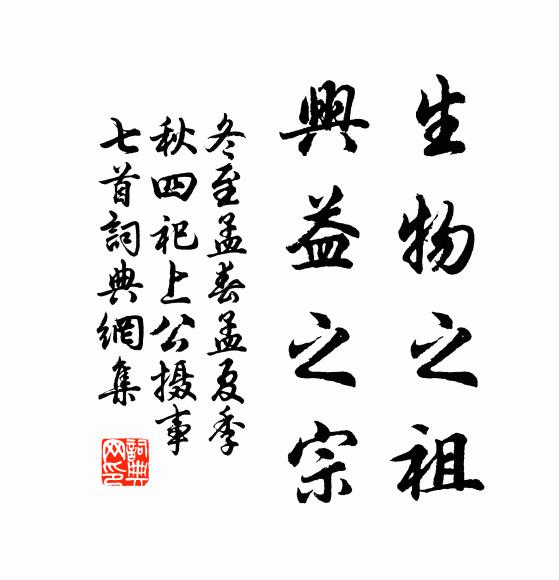 生物之祖
興益之宗
冬至孟春孟夏季
秋四祀上公摄事
七首詞典網集
詞典
网印